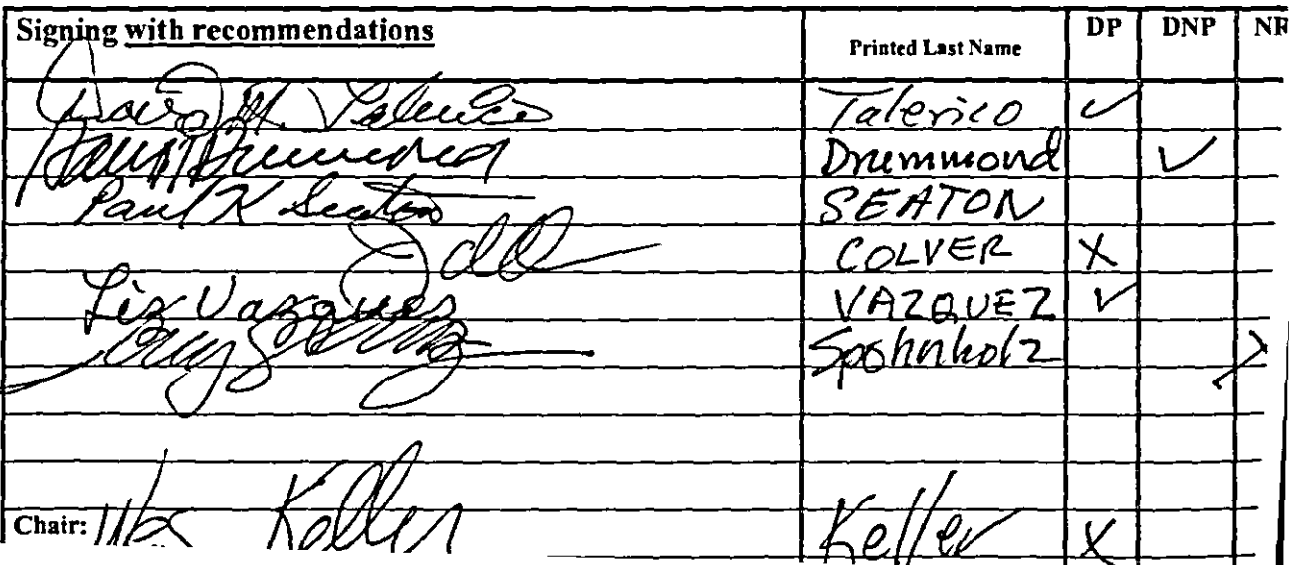 Signing with recommendations Printed Last Name DP DNP NR
David M. Talerico Talerico ✓
Harriet Drummond Drummond ✓
Paul K Seaton SEATON
COLVER X
Liz Vazquez VAZQUEZ ✓
Spohnholz X
Chair: Wes Keller Keller X